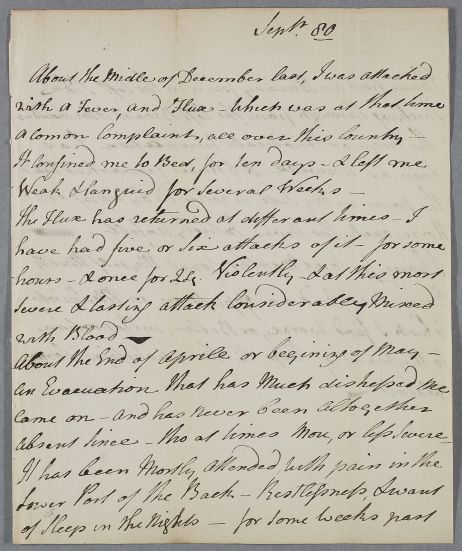 Septr. 80
About the Midle of December last, I was attacked
with a Fever, and Flux - which was at that time
a Comon Complaint, all over this Country -
It confined me to Bed, for ten days - & left me
Weak & Languid for several Weeks -
The Flux has returned at different times - I
have had five or six attacks of it - for some
hours - & once for Violently - & at this most
severe & lasting attack Considerably Mixed
with Blood
About the End of Aprile or begining of May -
an Evacuation that has Much distressed Me
came on - and has never been altogether
absent since - tho at times More, or less severe
It has been Mostly attended with pain in the
Lower Part of the Back - Restlessness & want
of Sleep in the Nights - for some weeks past